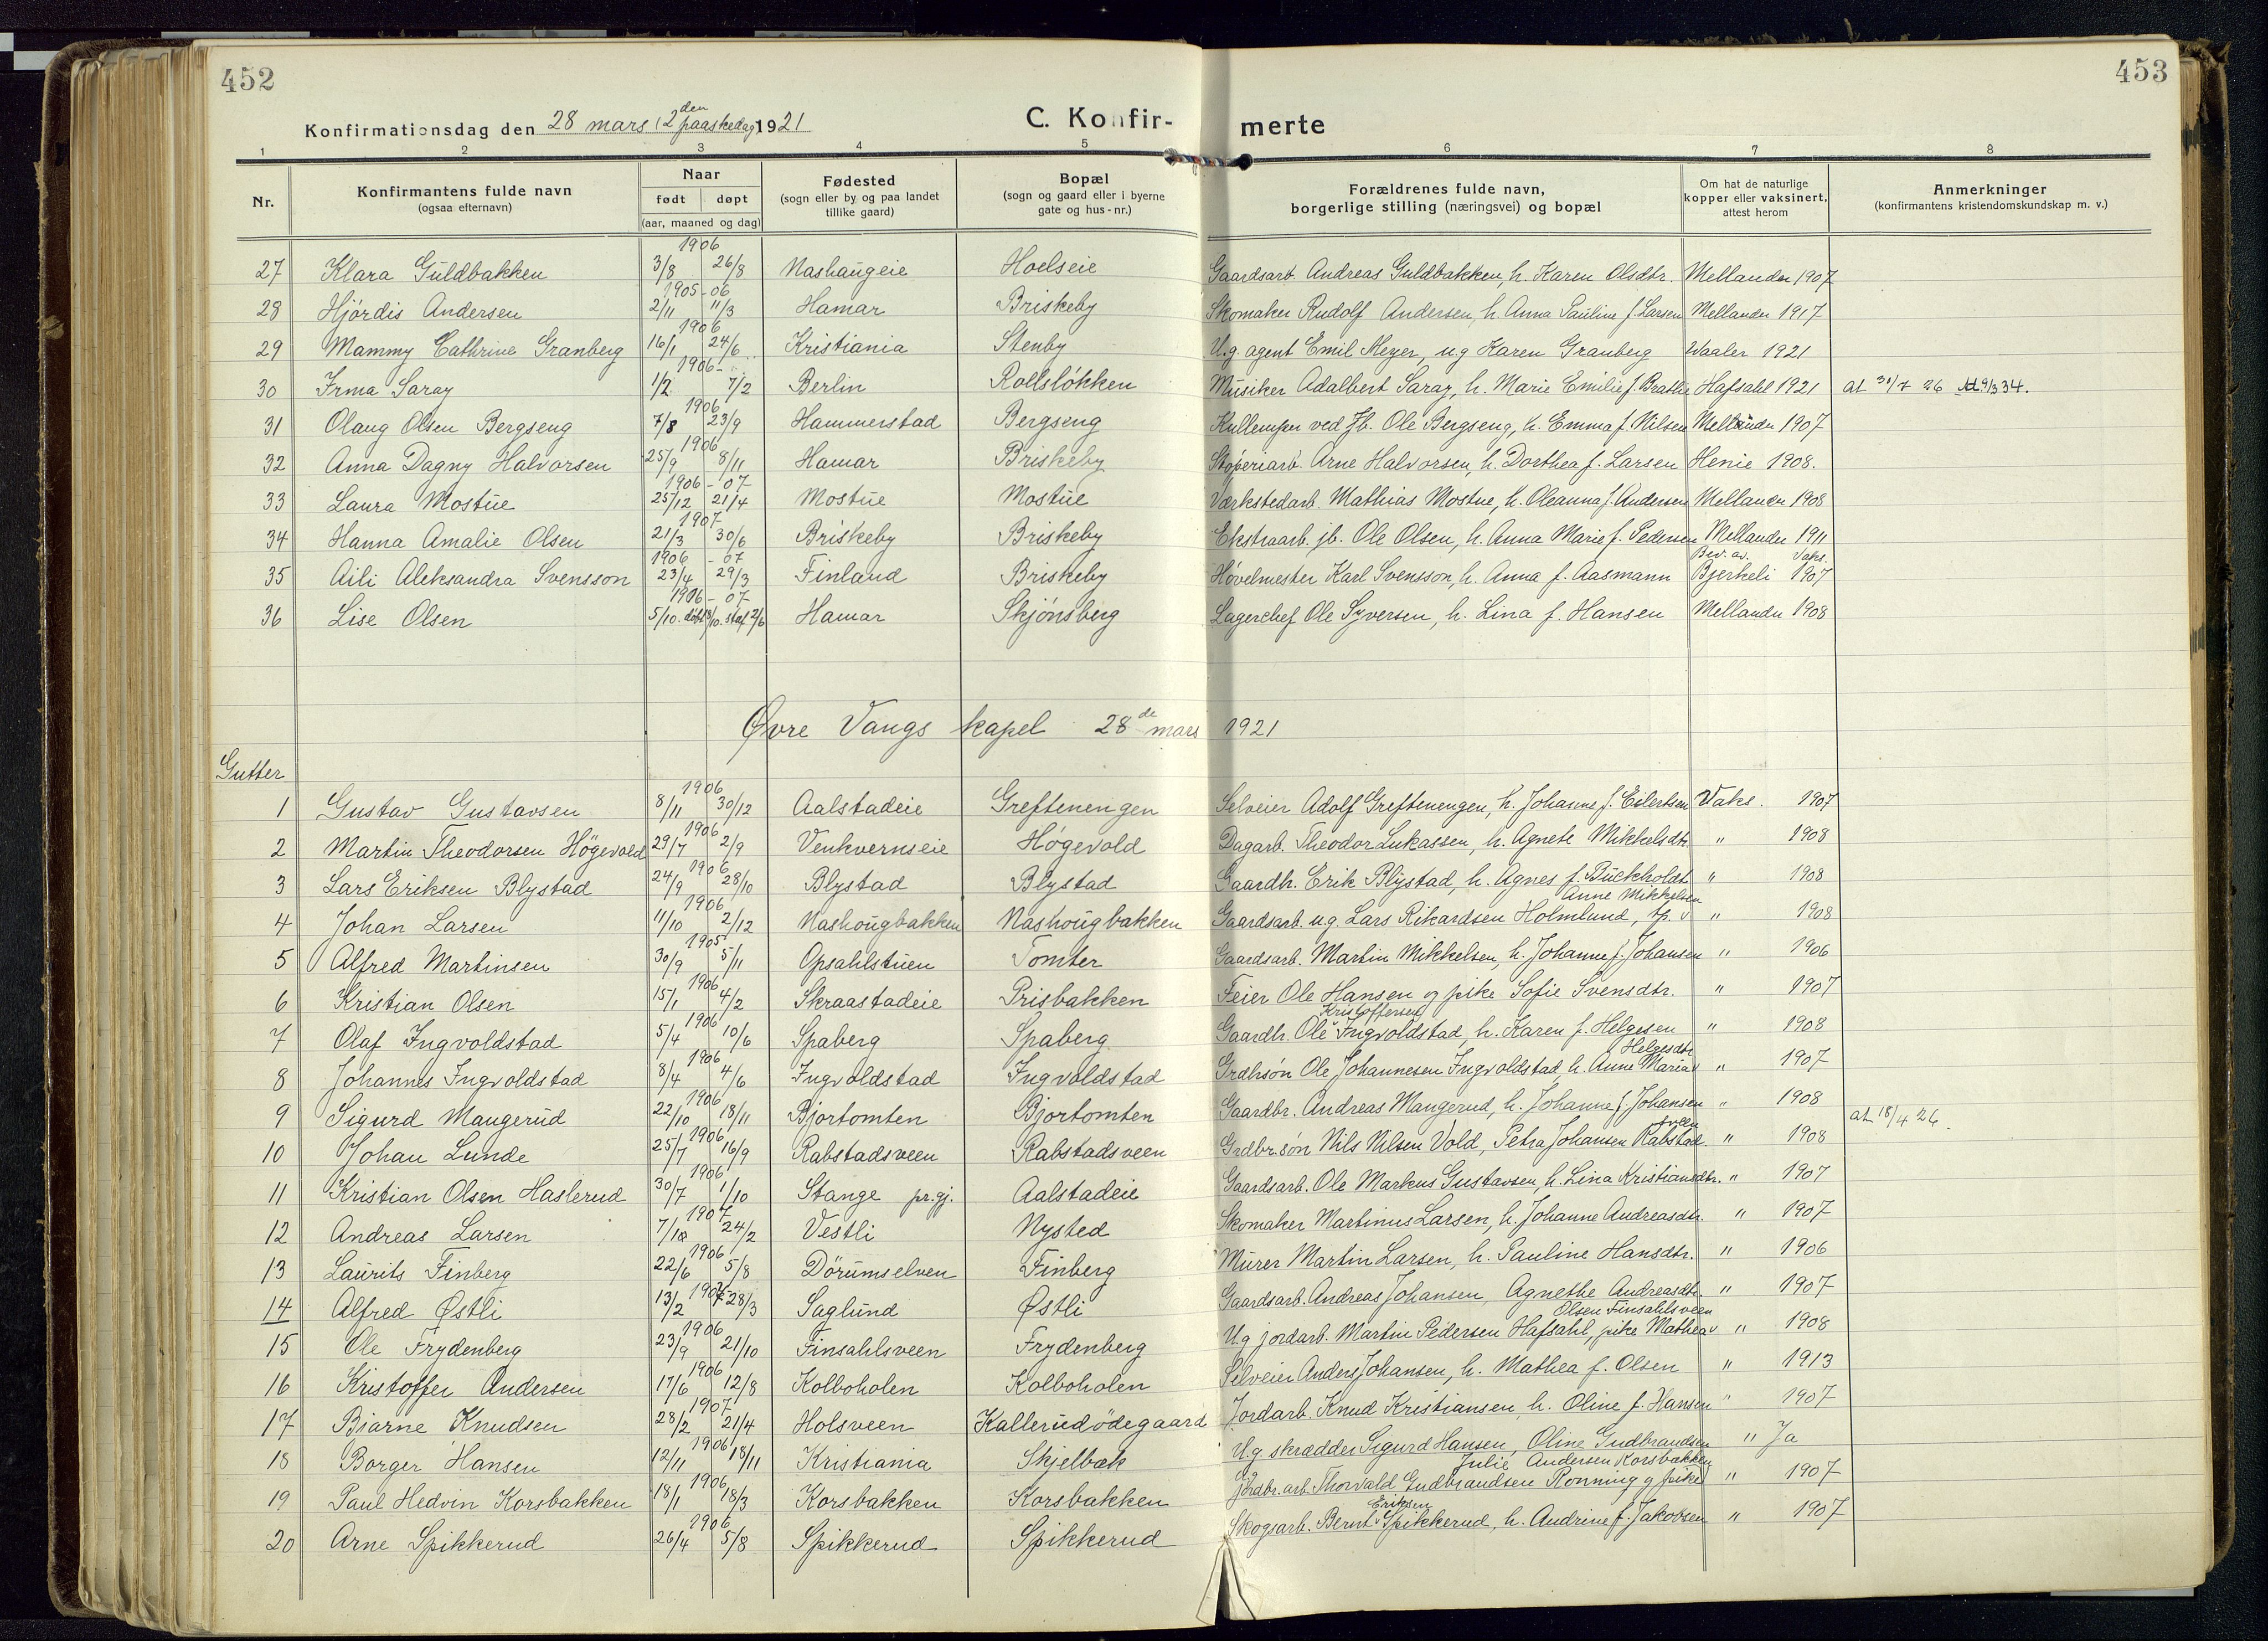 452
453
Konfirmationsdag den 28 mars (2den paaskedag) 1921
C. Konfir-merte
1 2 3 4 5 6 7 8
Nr. Konfirmantens fulde navn (ogsaa efternavn) Naar født døpt (aar, maaned og dag) Fødested (sogn eller by og paa landet tillike gaard) Bopæl (sogn og gaard eller i byerne gate og hus-nr.) Forældrenes fulde navn, borgerlige stilling (næringsvei) og bopæl Om hat de naturlige kopper eller vaksinert, attest herom Anmerkninger (konfirmantens kristendomskundskap m. v.)
27 Klara Guldbakken 1906 3/8 26/8 Nashaugeie Hoelseie Gaardsarb. Andreas Guldbakken, h. Karen Olsdtr. Mellander 1907
28 Hjördis Andersen 1905-06 2/11 11/3 Hamar Briskeby Skomaker Rudolf Andersen, h. Anna Pauline f. Larsen Mellander 1917
29 Mammy Cathrine Granberg 1906 16/1 24/6 Kristiania Stenby U.g. agent Emil Meyer, ug Karen Granberg Waaler 1921
30 Irma Saray 1906- 1/2 7/2 Berlin Rollsløkken Musiker Adalbert Saray, h. Marie Emilie f. Brathe Hafsahl 1921 at 31/7 26 At 9/3 34.
31 Olaug Olsen Bergseng 1906 7/8 23/9 Hammerstad Bergseng Kullemper ved Jb. Ole Bergseng, h. Emma f. Nilsen Mellander 1907
32 Anna Dagny Halvorsen 1906 25/9 8/11 Hamar Briskeby Støperiarb. Arne Halvorsen, h. Dorthea f. Larsen Henie 1908.
33 Laura Mostue 1906-07 25/12 21/4 Mostue Mostue Værkstedarb. Mathias Mostue, h. Oleanna f. Andersen Mellander 1908
34 Hanna Amalie Olsen 1907 21/3 30/6 Briskeby Briskeby Ekstraarb. jb. Ole Olsen, h. Anna Marie f. Pedersen Mellander 1911
35 Aili Aleksandra Svensson 1906-07 23/4 29/3 Finland Briskeby Høvelmester Karl Svensson, h. Anna f. Aasmann Bev. av. Vaks. Bjerkeli 1907
36 Lise Olsen 1906-07 5/10. Hamar Skjönsberg Lagerchef Ole Syversen, h. Lina f. Hansen Mellander 1908
Øvre Vangs kapel 28de mars 1921
Gutter
1 Gustav Gustavsen 1906 8/11 30/12 Aalstadeie Greftenengen Selveier Adolf Greftenengen, h. Johanne f. Eilertsen Vaks. 1907
2 Martin Theodorsen Högevold 1906 29/7 2/9 Venkvernseie Høgevold Dagarb. Theodor Lukassen, h. Agnete Mikkelsdtr. " 1908
3 Lars Eriksen Blystad 1906 24/9 28/10 Blystad Blystad Gaardb. Erik Blystad, h. Agnes f. Buckholdt " 1908
4 Johan Larsen 1906 11/10 2/12 Nashougbakken Nashougbakken Gaardsarb. u.g. Lars Rikardsen Holmlund, tp. Anne Mikkelsen " 1908
5 Alfred Martinsen 1905 30/9 5/11 Opsahlstuen Tomter Gaardsarb. Martin Mikkelsen, h. Johanne f. Johansen " 1906
6 Kristian Olsen 1906 15/1 4/2 Skraastadeie Prisbakken Feier Ole Hansen og pike Sofie Svensdtr. " 1907
7 Olaf Ingvoldstad 1906 5/4 10/6 Spaberg Spaberg Gaardb. Ole Kristoffersen Ingvoldstad, h. Karen f. Helgesen " 1908
8 Johannes Ingvoldstad 1906 8/4 4/6 Ingvoldstad Ingvoldstad Grdbrsön Ole Johannesen Ingvoldstad, h. Anne Maria Helgesdtr " 1907
9 Sigurd Maugerud 1906 22/10 18/11 Bjortomten Bjortomten Gaardbr. Andreas Maugerud, h. Johanne f. Johansen " 1908 at 18/4 26.
10 Johan Lunde 1906 25/7 16/9 Rabstadsveen Rabstadsveen Grdbr.sön Nils Nilsen Vold, Petra Johansen Rabstadsveen " 1908
11 Kristian Olsen Haslerud 1906 30/7 1/10 Stange pr.gj. Aalstadeie Gaardsarb. Ole Markus Gustavsen, h. Lina Kristiansdtr. " 1907
12 Andreas Larsen 1907 24/2 Vestli Nysted Skomaker Martinus Larsen, h. Johanne Andreasdtr. " 1907
13 Laurits Finberg 1906 22/6 5/8 Dörumselven Finberg Murer Martin Larsen, h. Pauline Hansdtr. " 1906
14 Alfred Østli 13/2 28/3 Saglund Østli Gaardsarb. Andreas Johansen, Agnethe Andreasdtr. " 1907
15 Ole Frydenberg 1906 23/9 21/10 Finsahlsveen Frydenberg U.g. jordarb. Martin Pedersen Hafsahl, pike Mathea Olsen Finsahlsveen " 1908
16 Kristoffer Andersen 1906 17/6 12/8 Kolboholen Kolboholen Selveier Anders Johansen, h. Mathea f. Olsen " 1913
17 Bjarne Knudsen 1907 28/2 21/4 Holsveen Kallerudødegaard Jordarb. Knud Kristiansen, h. Oline f. Hansen " 1907
18 Borger Hansen 1906 12/11 18/11 Kristiania Skjelbæk U.g. skrædder Sigurd Hansen, Oline Gudbrandsen " Ja
19 Paul Hedvin Korsbakken 1906 18/1 18/3 Korsbakken Korsbakken Jordbr. arb. Thorvald Gudbrandsen Rønning og pike Julie Andersen Korsbakken " 1907
20 Arne Spikkerud 1906 26/4 5/8 Spikkerud Spikkerud Skogsarb. Bernt Eriksen Spikkerud, h. Andrine f. Jakobsen " 1907